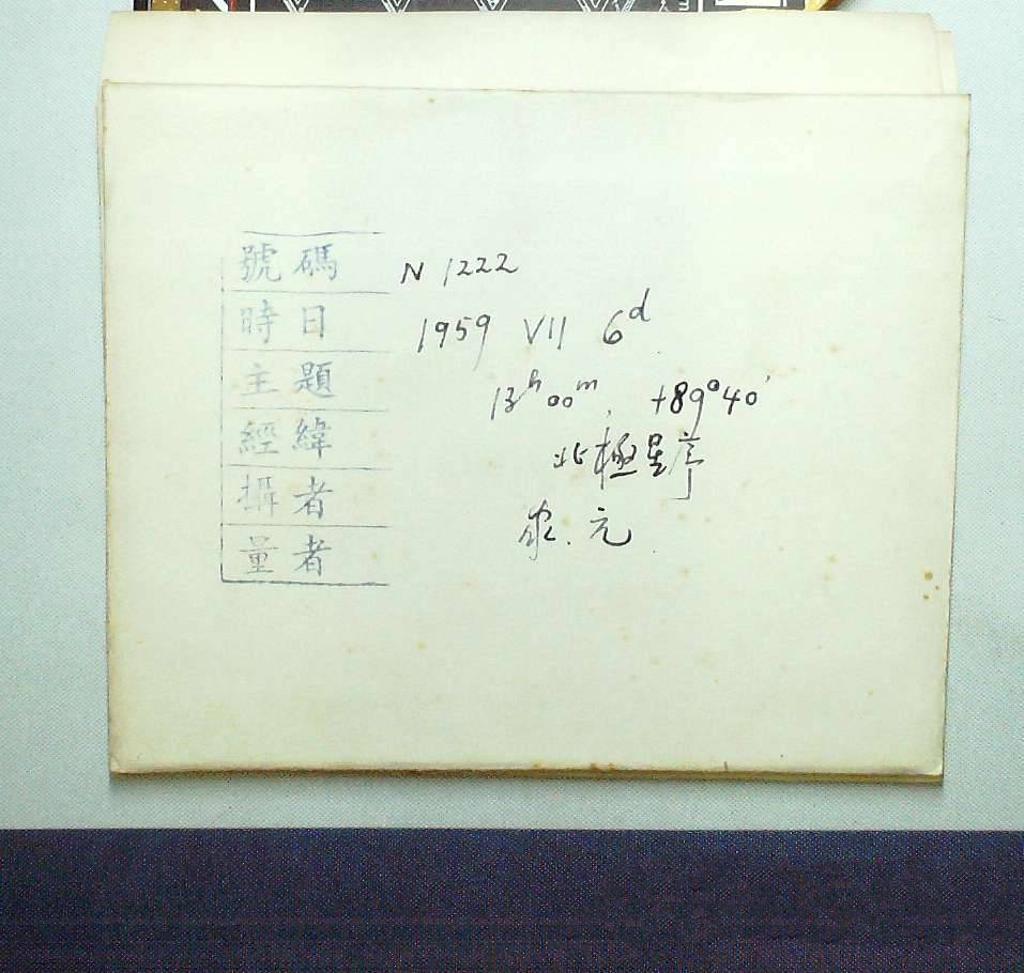 號碼 N 1222
時日 1959 VII 6d
主題 13h00m, +89°40'
經緯 北極星序
攝者
量者